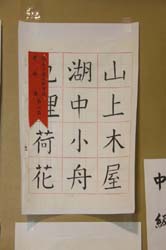 山上木屋
湖中小舟
池裡荷花
中級